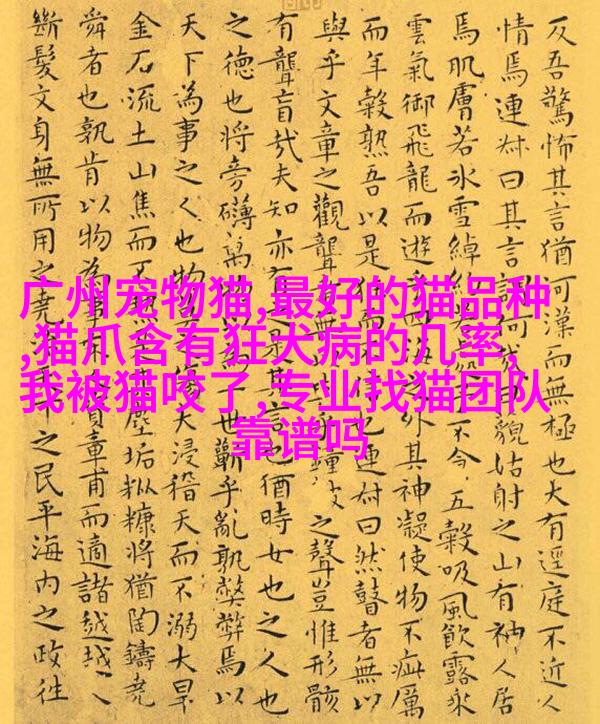 广州宠物猫,最好的猫品种
,猫爪含有狂犬病的几率,
我被猫咬了,专业找猫团队
靠谱吗
反吾驚怖其言猶河漢而無極也大有逕庭不近人
情焉連叔曰其言謂何貌姑射之山有神人居
焉肌膚若冰雪綽約不今五穀吸風飲露乘
雲氣御飛龍而遊乎四海外其神凝使物不疵厲
而年穀熟吾以是也連叔曰然瞽者無以
與乎文章之觀聾無之聲豈惟形骸
有聾盲哉夫知亦有是其言也猶時女也之人也
之德也將旁礴萬世蘄乎亂孰弊弊焉以
天下為事之人也物大浸稽天而不溺大旱
金石流土山焦而不塵垢粃糠將猶陶鑄堯
舜者也孰肯以物為事資章甫而適諸越越人
斷髮文身無所用之堯之民平海内之政往